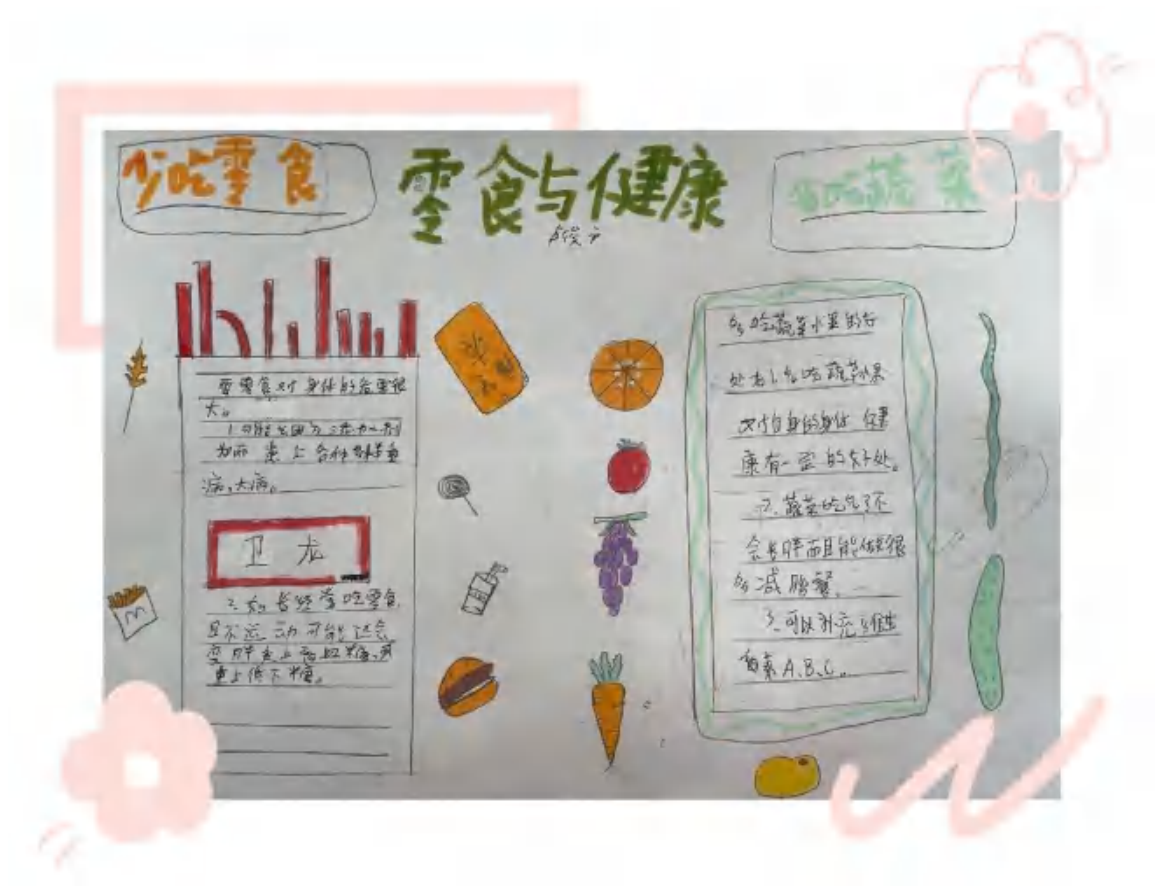 少吃零食
零食与健康
多吃蔬菜
零食对身体的危害很
大。
1.可能会因为
而患上各种
病,大病。
卫龙
2.如若经常吃零食
且不运动可能还会
变胖患上高血糖,
患上低下糖。
多吃蔬菜水果的好
处为1.多吃蔬菜水果
对自身的身体健
康有一定的好处。
2.蔬菜吃多了不
会长胖而且能做很
多减脂餐。
3.可以补充维生
素A.B.C。